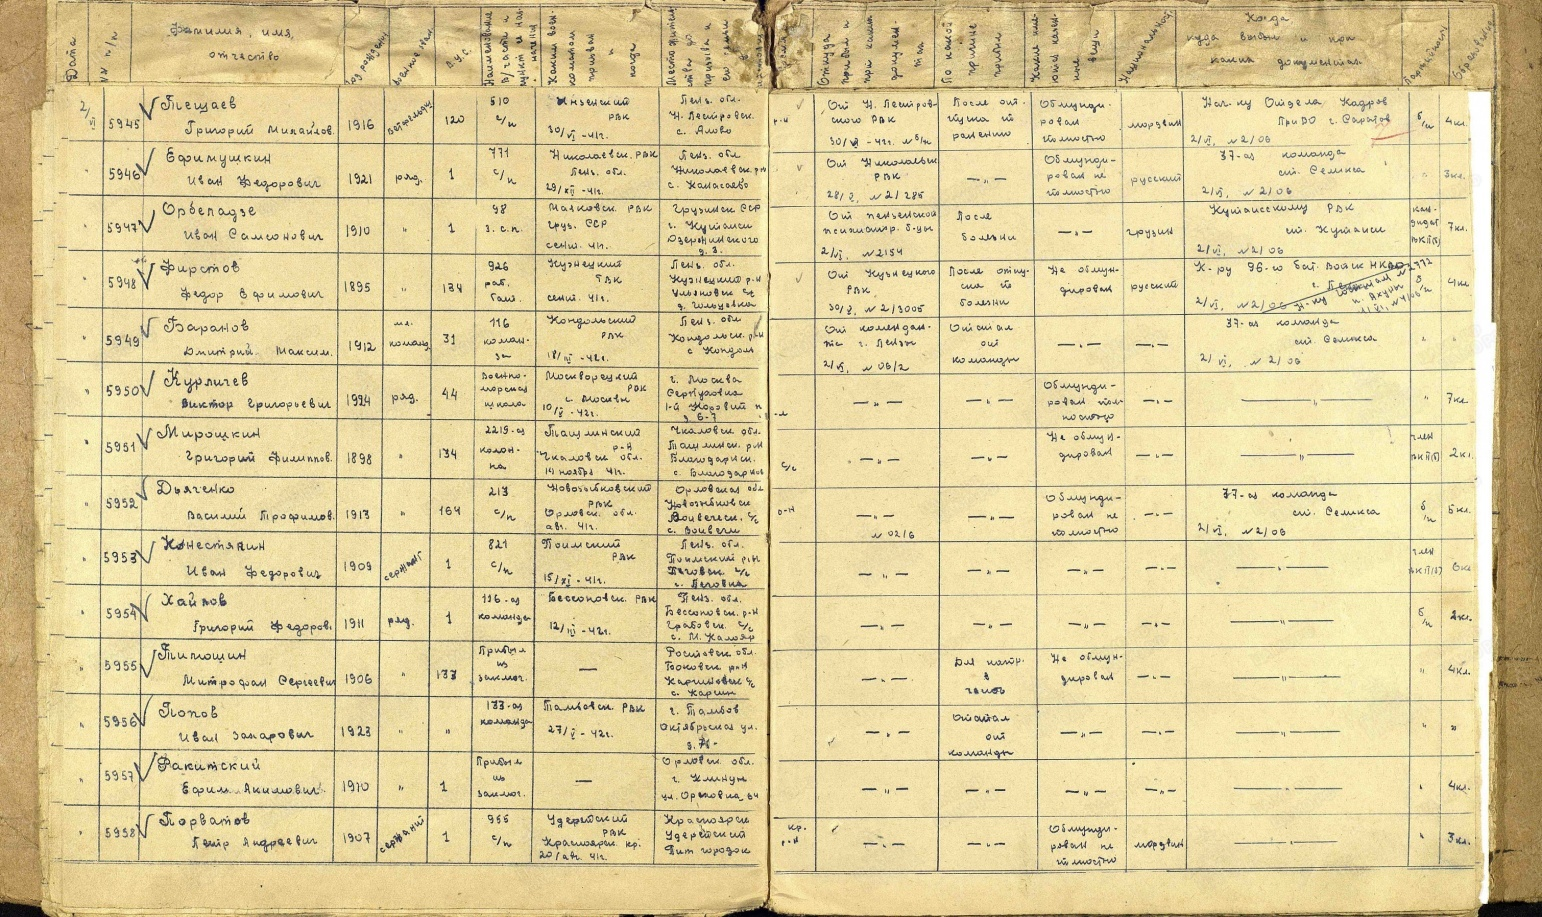 Дата
№№ п/п
Фамилия, имя,
отчество
Год рождения
В.У.С.
Каким воен-
коматом
призван
и
когда
Откуда
прибыл и
при каких
документах
По какой
причине
прибыл
Национальность
Когда,
куда выбыл и при
каких документах
Партийность
Образование
2/VI 5945 Тещаев
Григорий Михайлов. 1916 120
510
с/п
Инзенский
РВК
30/VI - 41г.
Пенз. обл.
Н. Пестровск.
с. Алово
р-н
От Н. Пестров-
ского РВК
30/VI - 42г. № б/н
После от-
пуска по
ранению
Обмунди-
рован
полностью
мордвин
Нач-ку Отдела Кадров
ПриВО г. Саратов
2/VI, № 2/06
б/п 4кл.
" 5946 Ефимушкин
Иван Федорович 1921 ряд. 1
771
с/п
Николаевск. РВК
Пенз. обл.
29/XII - 41г.
Пенз. обл.
Николаевск. р-н
с. Канасаево
От Николаевск
РВК
28/V, № 2/285
—„—
Обмунди-
рован не
полностью
русский
37-ая команда
ст. Селикса
2/VI, № 2/06
" 3кл.
" 5947 Орбеладзе
Иван Самсонович 1910 " 1
98
з.с.п.
Маяковск. РВК
Груз. ССР
сент. 41г.
Грузинск ССР
г. Кутаиси
Дзержинского
д. 3.
От пензенской
психиатр. б-цы
2/VI, № 2154
После
болезни
—„—
грузин
Кутаисскому РВК
ст. Кутаиси
2/VI, № 2/06
кан-
дидат
ВКП(б) 7кл.
" 5948 Фирстов
Федор Ефимович 1895 " 134
926
раб.
бат.
Кузнецкий
РВК
сент. 41г.
Пенз. обл.
Кузнецкий р-н
Ульяновск с/с
д. Гольцовка
От Кузнецкого
РВК
30/V, № 2/3005
После отпу-
ска по
болезни
Не обмун-
дирован
русский
К-ру 96-го бат. войск НКВД
2/VI, № 2/06
" 4кл
" 5949 Баранов
Дмитрий Максим. 1912 мл.
команд. 31
116
коман-
да
Кондольский
РВК
18/III - 42г.
Пенз. обл
Кондольск. р-н
с Кондоль
От комендан-
та г. Пензы
2/VI, № 06/2
Отстал
от
команды
—„—
—„—
37-ая команда
ст. Селикса
2/VI, № 2/06
" "
" 5950 Курличев
Виктор Григорьевич 1924 ряд. 44
Военно-
морская
школа
Москворецкий
РВК
г. Москвы
10/V - 42г.
г. Москва
Серпуховка
д 6-7
—„—
—„—
Обмунди-
рован пол-
ностью
—„—
—„—
" 7кл.
" 5951 Мирошкин
Григорий Филиппов. 1898 " 134
2219-ая
колон-
на
Ташлинский
р-н
Чкаловск. обл.
14 ноября 41г.
Чкаловск. обл.
Ташлинск. р-н
Благодарнск.
с. Благодарное
с/с
—„—
—„—
Не обмун-
дирован
—„—
—„—
член
ВКП(б) 2кл.
" 5952 Дьяченко
Василий Трофимов. 1913 " 164
213
с/п
Новозыбковский
РВК
Орловск. обл.
авг. 41г.
Орловская обл
Новозыбковск
р-н
—„—
№ 02/6
—„—
Обмунди-
рован не
полностью
—„—
37-ая команда
ст. Селикса
2/VI, № 2/06
б/п 5кл.
" 5953 Конестяпин
Иван Федорович 1909 сержант 1
821
с/п
Поимский
РВК
15/XI - 41г.
Пенз. обл.
Поимский р-н
—„—
—„—
—„—
—„—
—„—
член
ВКП(б) 6кл
" 5954 Хайлов
Григорий Федоров. 1911 ряд. 1
116-ая
команда
Бессоновск. РВК
12/III - 42г.
Пенз. обл.
Бессоновск. р-н
Грабовск. с/с
—„—
—„—
—„—
—„—
—„—
б/п 2кл.
" 5955 Тимошин
Митрофан Сергеевич 1906 " 133
Прибыл
из
заключ.
—
Ростовск. обл.
Боковск. р-н
Каргиновск с/с
с. Каргин
—„—
Для напр.
в
часть
Не обмун-
дирован
—„—
—„—
" 4кл.
" 5956 Попов
Иван Захарович 1923 " "
133-ая
команда
Тамбовск. РВК
27/V - 42г.
г. Тамбов
Октябрьская ул.
—„—
Отстал
от
команды
—„—
—„—
—„—
" "
" 5957 Ракитский
Ефим Акимович 1910 " 1
Прибыл
из
заключ.
—
Орловск. обл.
—„—
—„—
—„—
—„—
—„—
" 4кл.
" 5958 Порватов
Петр Андреевич 1907 сержант 1
955
с/п
Удерейский
РВК
Красноярск. кр.
20/авг. 41г.
Красноярск
Удерейский
Пит городок
кр.
р-н
—„—
—„—
Обмунди-
рован не
полностью
мордвин
—„—
" 3кл.